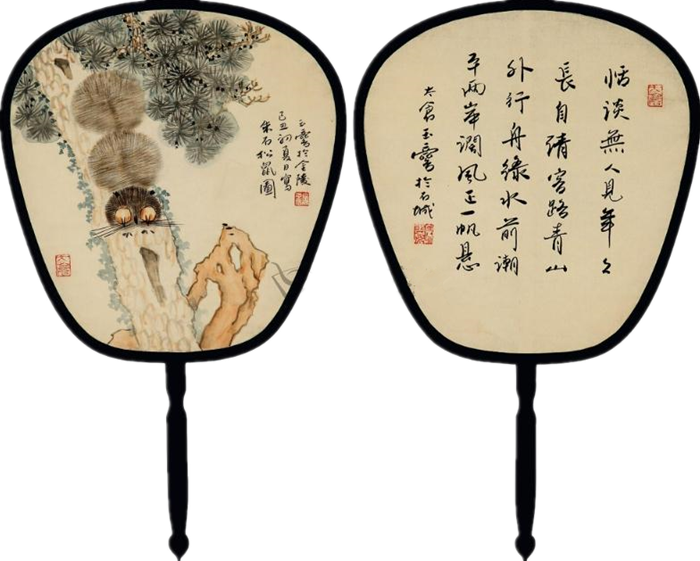 玉於金陵
己丑初夏日寫
朱石松鼠圖
恬談無人見年々
長自清客路青山
外行舟綠水前潮
平兩岸闊風正一帆懸
太倉玉於石城